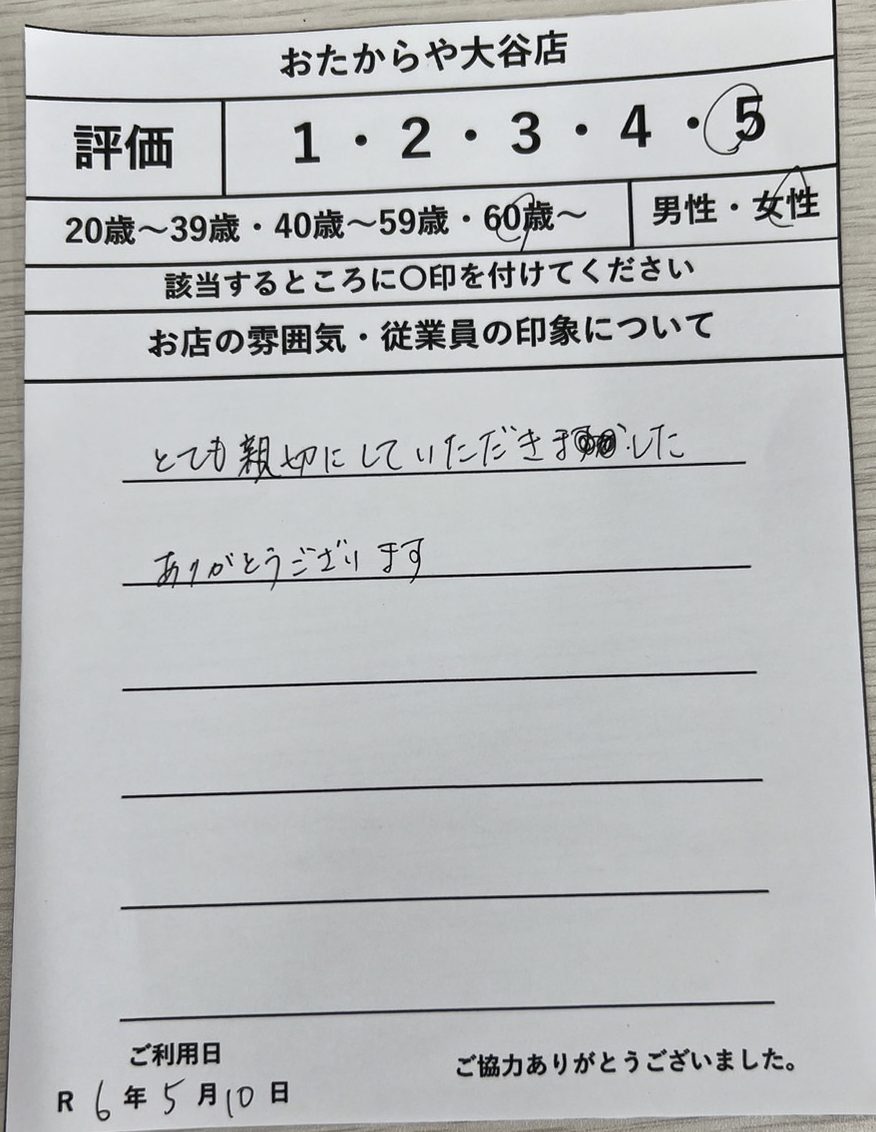 おたからや大谷店
評価 1・2・3・4・5
20歳～39歳・40歳～59歳・60歳～ 男性・女性
該当するところに〇印を付けてください
お店の雰囲気・従業員の印象について
とても親切にしていただきました
ありがとうございます
ご利用日
R 6年5月10日
ご協力ありがとうございました。